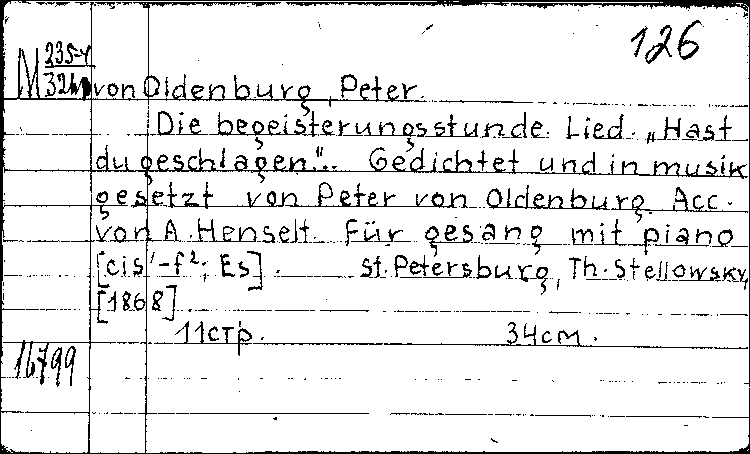 126
M 235-4
von Oldenburg, Peter.
Die begeisterungsstunde. Lied. „Hast
du geschlagen.".. Gedichtet und in musik
gesetzt von Peter von Oldenburg. Acc.
von A. Henselt. Für gesang mit piano
[cis¹-f²; Es]. St. Petersburg, Th. Stellowsky,
[1868]
11стр. 34см.
16799